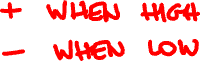 + WHEN HIGH
- WHEN LOW